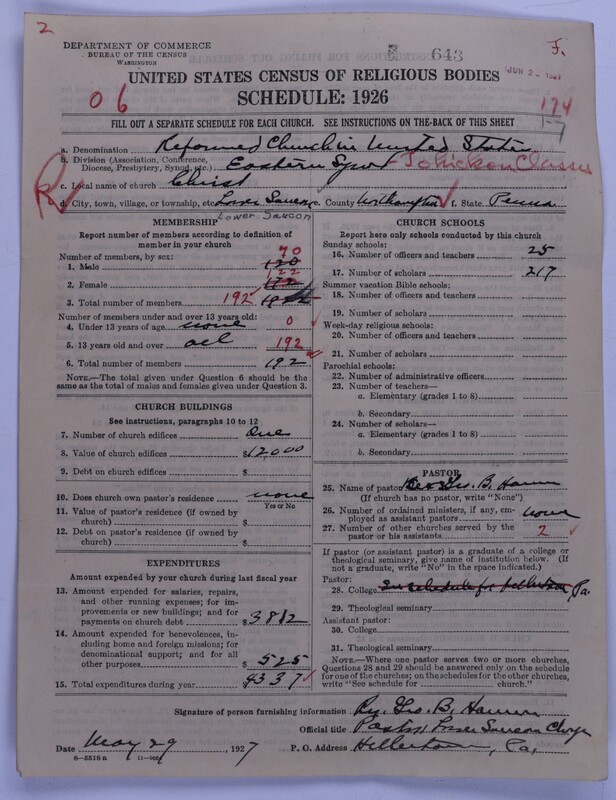 2
DEPARTMENT OF COMMERCE
BUREAU OF THE CENSUS
WASHINGTON
643
F.
JUN 2 - 1927
UNITED STATES CENSUS OF RELIGIOUS BODIES
SCHEDULE: 1926
06
174
1-7
FILL OUT A SEPARATE SCHEDULE FOR EACH CHURCH. SEE INSTRUCTIONS ON THE BACK OF THIS SHEET
a. Denomination Reformed Church in United States
b. Division (Association, Conference, Diocese, Presbytery, Synod, etc.) Eastern Synod - Tohickon Classis
c. Local name of church Christ
d. City, town, village, or township, etc. Lower Saucon e. County Northampton f. State Penna
Lower Saucon
MEMBERSHIP
Report number of members according to definition of
member in your church
Number of members, by sex:
1. Male 120 70
2. Female 172 122
3. Total number of members 192
Number of members under and over 13 years old:
4. Under 13 years of age none 0
5. 13 years old and over all 192
6. Total number of members 192
NOTE.—The total given under Question 6 should be the
same as the total of males and females given under Question 3.
CHURCH BUILDINGS
See instructions, paragraphs 10 to 12
7. Number of church edifices One
8. Value of church edifices $12000
9. Debt on church edifices $
10. Does church own pastor's residence none
Yes or No
11. Value of pastor's residence (if owned by
church) $
12. Debt on pastor's residence (if owned by
church) $
EXPENDITURES
Amount expended by your church during last fiscal year
13. Amount expended for salaries, repairs,
and other running expenses; for im-
provements or new buildings; and for
payments on church debt $3812
14. Amount expended for benevolences, in-
cluding home and foreign missions; for
denominational support; and for all
other purposes $525
15. Total expenditures during year $4337
CHURCH SCHOOLS
Report here only schools conducted by this church
Sunday schools:
16. Number of officers and teachers 25
17. Number of scholars 217
Summer vacation Bible schools:
18. Number of officers and teachers
19. Number of scholars
Week-day religious schools:
20. Number of officers and teachers
21. Number of scholars
Parochial schools:
22. Number of administrative officers
23. Number of teachers—
a. Elementary (grades 1 to 8)
b. Secondary
24. Number of scholars—
a. Elementary (grades 1 to 8)
b. Secondary
PASTOR
25. Name of pastor Rev. Geo. B. Hamm
(If church has no pastor, write "None")
26. Number of ordained ministers, if any, em-
ployed as assistant pastors none
27. Number of other churches served by the
pastor or his assistants 2
If pastor (or assistant pastor) is a graduate of a college or
theological seminary, give name of institution below. (If
not a graduate, write "No" in the space indicated.)
Pastor:
28. College See schedule for Hellertown Pa.
29. Theological seminary
Assistant pastor:
30. College
31. Theological seminary
NOTE.—Where one pastor serves two or more churches,
Questions 28 and 29 should be answered only on the schedule
for one of the churches; on the schedules for the other churches,
write "See schedule for church."
Signature of person furnishing information Rev. Geo. B. Hamm
Official title Pastor Lower Saucon Charge
Date May 29, 1927 P. O. Address Hellertown, Pa.
8-5518 a